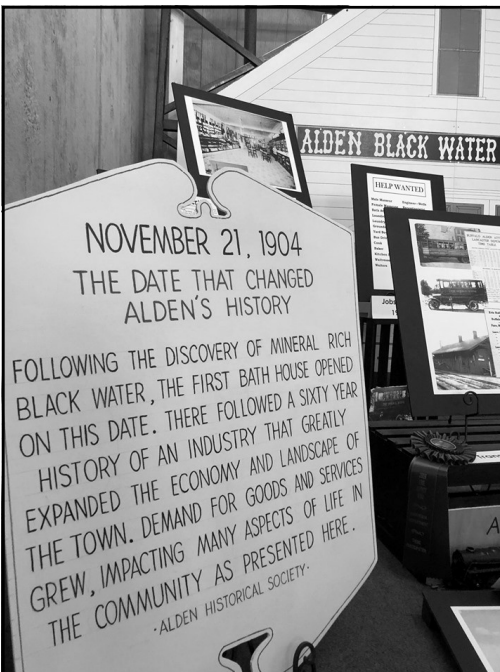 ALDEN BLACK WATER
HELP WANTED
NOVEMBER 21, 1904
THE DATE THAT CHANGED
ALDEN'S HISTORY
FOLLOWING THE DISCOVERY OF MINERAL RICH
BLACK WATER, THE FIRST BATH HOUSE OPENED
ON THIS DATE. THERE FOLLOWED A SIXTY YEAR
HISTORY OF AN INDUSTRY THAT GREATLY
EXPANDED THE ECONOMY AND LANDSCAPE OF
THE TOWN. DEMAND FOR GOODS AND SERVICES
GREW, IMPACTING MANY ASPECTS OF LIFE IN
THE COMMUNITY AS PRESENTED HERE.
·ALDEN HISTORICAL SOCIETY·